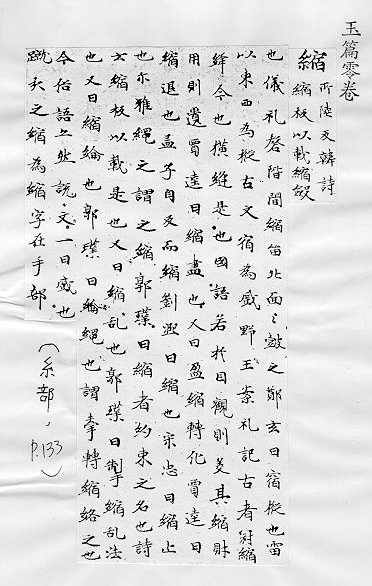 玉篇零卷
縮 所陸反韓詩
縮板以載縮斂
也儀礼磬階間縮霤北面〻鼓之鄭玄曰宿樅也霤
以東西為樅古文宿為蹙野王案礼記古者冠縮
縫今也橫縫是也國語若於目觀則美其縮財
用則遺賈逵曰縮盡也又曰盈縮轉化賈逵曰
縮退也孟子自反而縮劉熙曰縮也宋忠曰縮止
也尒雅繩之謂之縮郭璞曰縮者約束之名也詩
云縮板以載是也又曰縮乱也郭璞曰制縮乱法
也又曰縮綸也郭璞曰綸繩也謂牽轉縮絡之也
今俗語亦然說文一曰蹙也
蹴之縮為縮字在手部
（糸部，P.133）